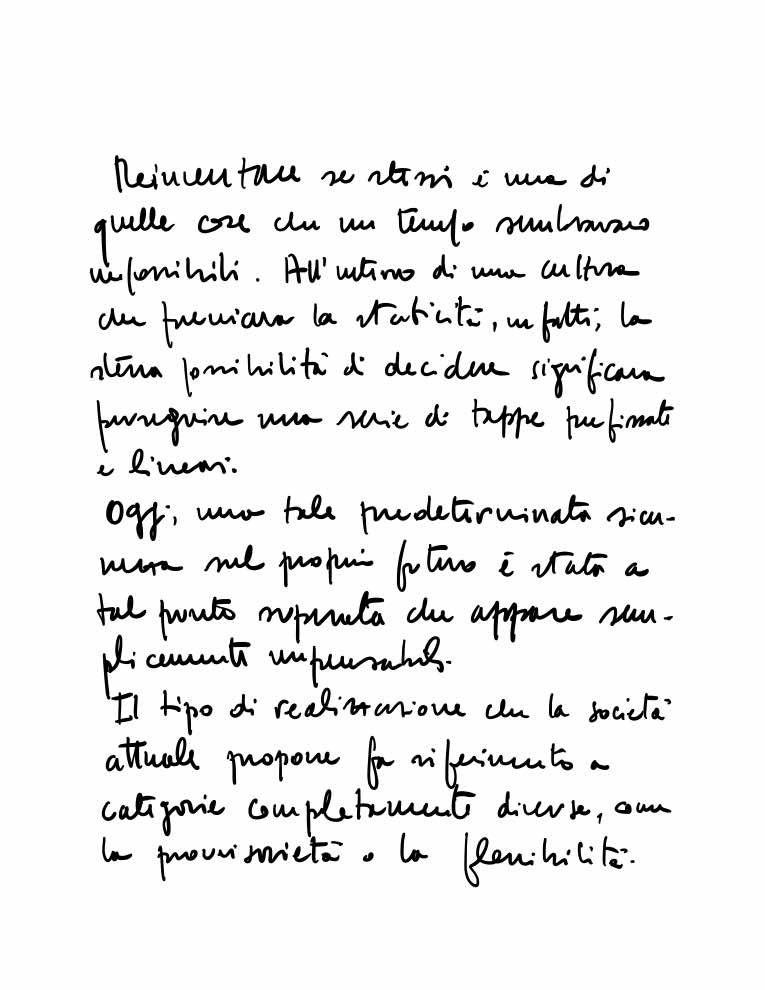 Reinventare se stessi è una di
quelle cose che un tempo sembravano
impossibili. All'interno di una cultura
che premiava la staticità, infatti, la
stessa possibilità di decidere significava
perseguire una serie di tappe prefissate
e lineari.
Oggi, una tale predeterminata sicu-
rezza sul proprio futuro è stata a
tal punto superata che appare sem-
plicemente impensabile.
Il tipo di realizzazione che la società
attuale propone fa riferimento a
categorie completamente diverse, come
la provvisorietà o la flessibilità.